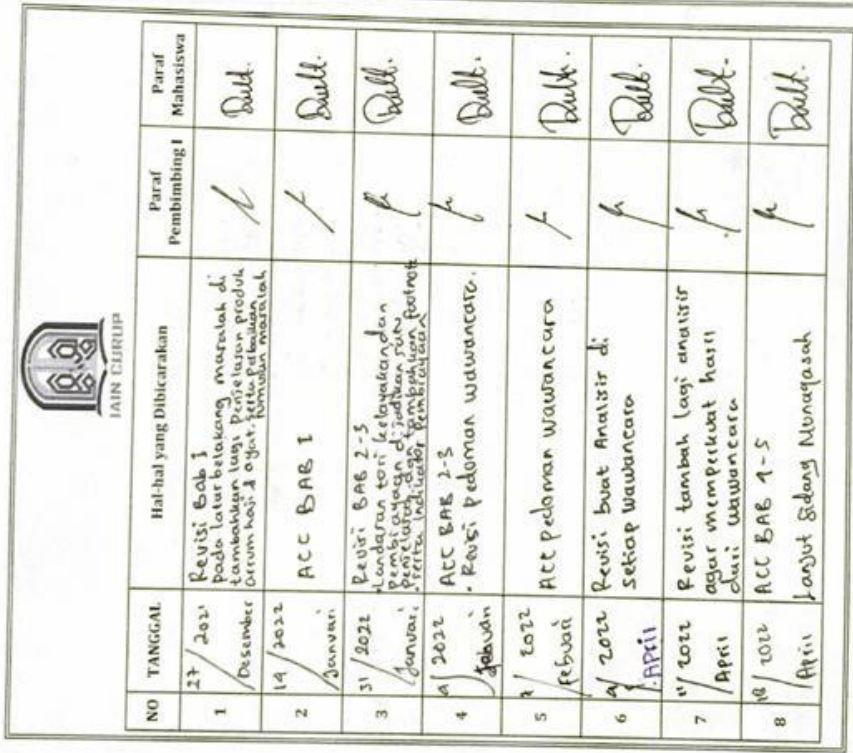 IAIN CURUP
NO TANGGAL Hal-hal yang Dibicarakan Paraf Pembimbing I Paraf Mahasiswa
1 27/2021 Desember Revisi Bab I
pada latar belakang masalah di
tambahkan lagi Penjelasan produk
arrum haji & ayat, serta perbaikan
rumusan masalah
2 19/2022 Januari ACC BAB I
3 31/2022 Januari Revisi BAB 2-3
Landasan tori kelayakan dan
pembiayaan dijadikan satu
penjelasan dan tambahkan footnote
serta indikator Pembiayaan
4 2022 ACC BAB 2-3
• Revisi pedoman wawancara.
5 7/2022 Febuari ACC pedoman wawancara
6 2022 April Revisi buat Analisir di
setiap wawancara
7 11/2022 April Revisi tambah lagi analisir
agar memperkuat hasil
dari wawancara
8 18/2022 April ACC BAB 4-5
Lanjut Sidang Munaqasah